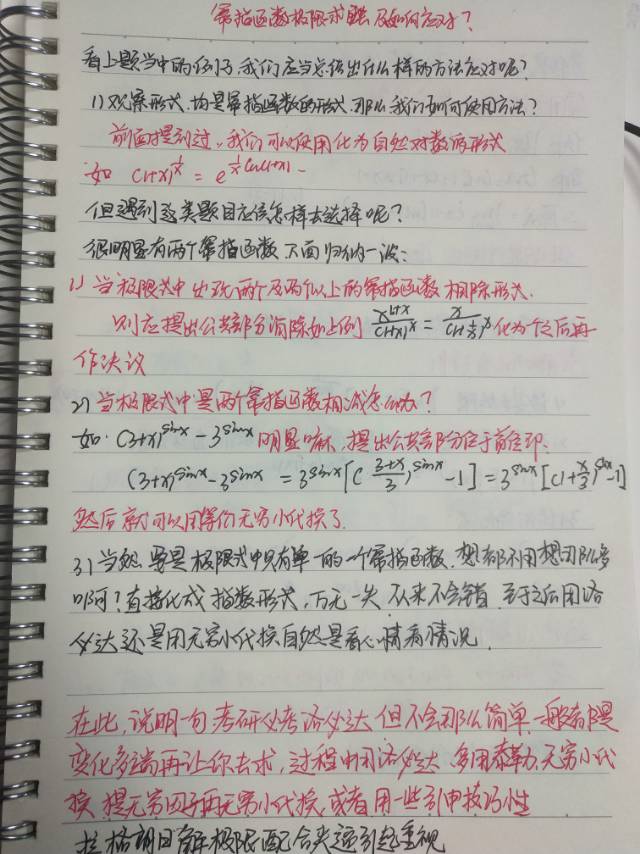 幂指函数极限求 及如何应对?
看上题当中的例子,我们应当总结出什么样的方法应对呢?
1) 观察形式,均是幂指函数的形式,那么,我们如何使用方法?
前面提到过,我们可以使用化为自然对数底形式
如 (1+x)^{1/x} = e^{1/x ln(1+x)}.
但遇到这类题目应该怎样去选择呢?
很明显有两个幂指函数 下面归纳一波:
1) 当极限式中出现两个及两个以上的幂指函数相除形式.
则应提出公共部分消除如上例 x^{1+x}/(1+x)^x = x/(1+1/x)^x 化为个之后再
作决议
2) 当极限式中是两个幂指函数相减怎么办?
如 (3+x)^{sinx} - 3^{sinx} 明显嘛, 提出公共部分位于前位即
(3+x)^{sinx} - 3^{sinx} = 3^{sinx}[(3+x/3)^{sinx} - 1] = 3^{sinx}[(1+x/3)^{sinx} - 1]
然后就可以用等价无穷小代换了.
3) 当然 要是极限式中只有单一的一个幂指函数,想都不用想那么多
啊?直接化成 指数形式,万无一失 从来不会错 至于之后用洛
必达还是用无穷小代换自然是看心情看情况.
在此,说明一句 考研必考洛必达 但不会那么简单 一般都是
变化多端再让你去求, 过程中用洛必达 多用泰勒, 无穷小代
换 提无穷因子再无穷小代换, 或者用一些引申技巧性
拉格朗日 解极限配合夹逼引起重视